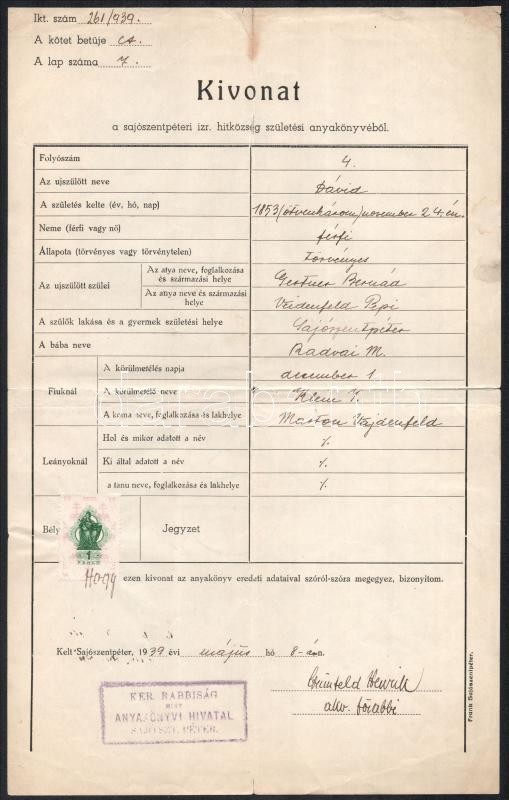 Ikt. szám 261/939.
A kötet betüje
A lap száma 7.
Kivonat
a sajószentpéteri izr. hitközség születési anyakönyvéből.
Folyószám 4.
Az ujszülött neve Dávid
A születés kelte (év, hó, nap) 1853 (ötvenhárom) november 24-én.
Neme (férfi vagy nő) férfi
Állapota (törvényes vagy törvénytelen) törvényes
Az ujszülött szülei
Az atya neve, foglalkozása és származási helye Gertner Bernád
Az atya neve és származási helye Veidenfeld Pepi
A szülők lakása és a gyermek születési helye Sajószentpéter
A bába neve Radvai M.
Fiuknál
A körülmetélés napja december 1.
A körülmetélő neve Klein
A koma neve, foglalkozása és lakhelye Marton Vajdenfeld
Leányoknál
Hol és mikor adatott a név ٪.
Ki által adatott a név ٪.
a tanu neve, foglalkozása és lakhelye ٪.
darabanth
Bély
Jegyzet
1
PENGŐ
Hogy ezen kivonat az anyakönyv eredeti adataival szóról-szóra megegyez, bizonyitom.
Kelt Sajószentpéter, 1939 évi május hó 8-án.
Grünfeld Henrik
akv. főrabbi
KER. RABBISÁG
MINT
ANYAKÖNYVI HIVATAL
SAJÓSZT. PÉTER.
Frank Sajószentpéter.